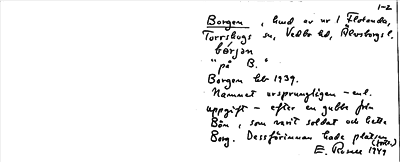 1-2
Borgen, hmd av nr 1 Flötanda,
Torrskogs sn, Vedbo hd, Älvsborgs l.
bórjan
"på B."
Borgen hb 1939.
Namnet ursprungligen – enl.
uppgift – efter en gubbe från
Bön, som varit soldat och hette
Borg. Dessförinnan hade platsen
E. Rosell 1949